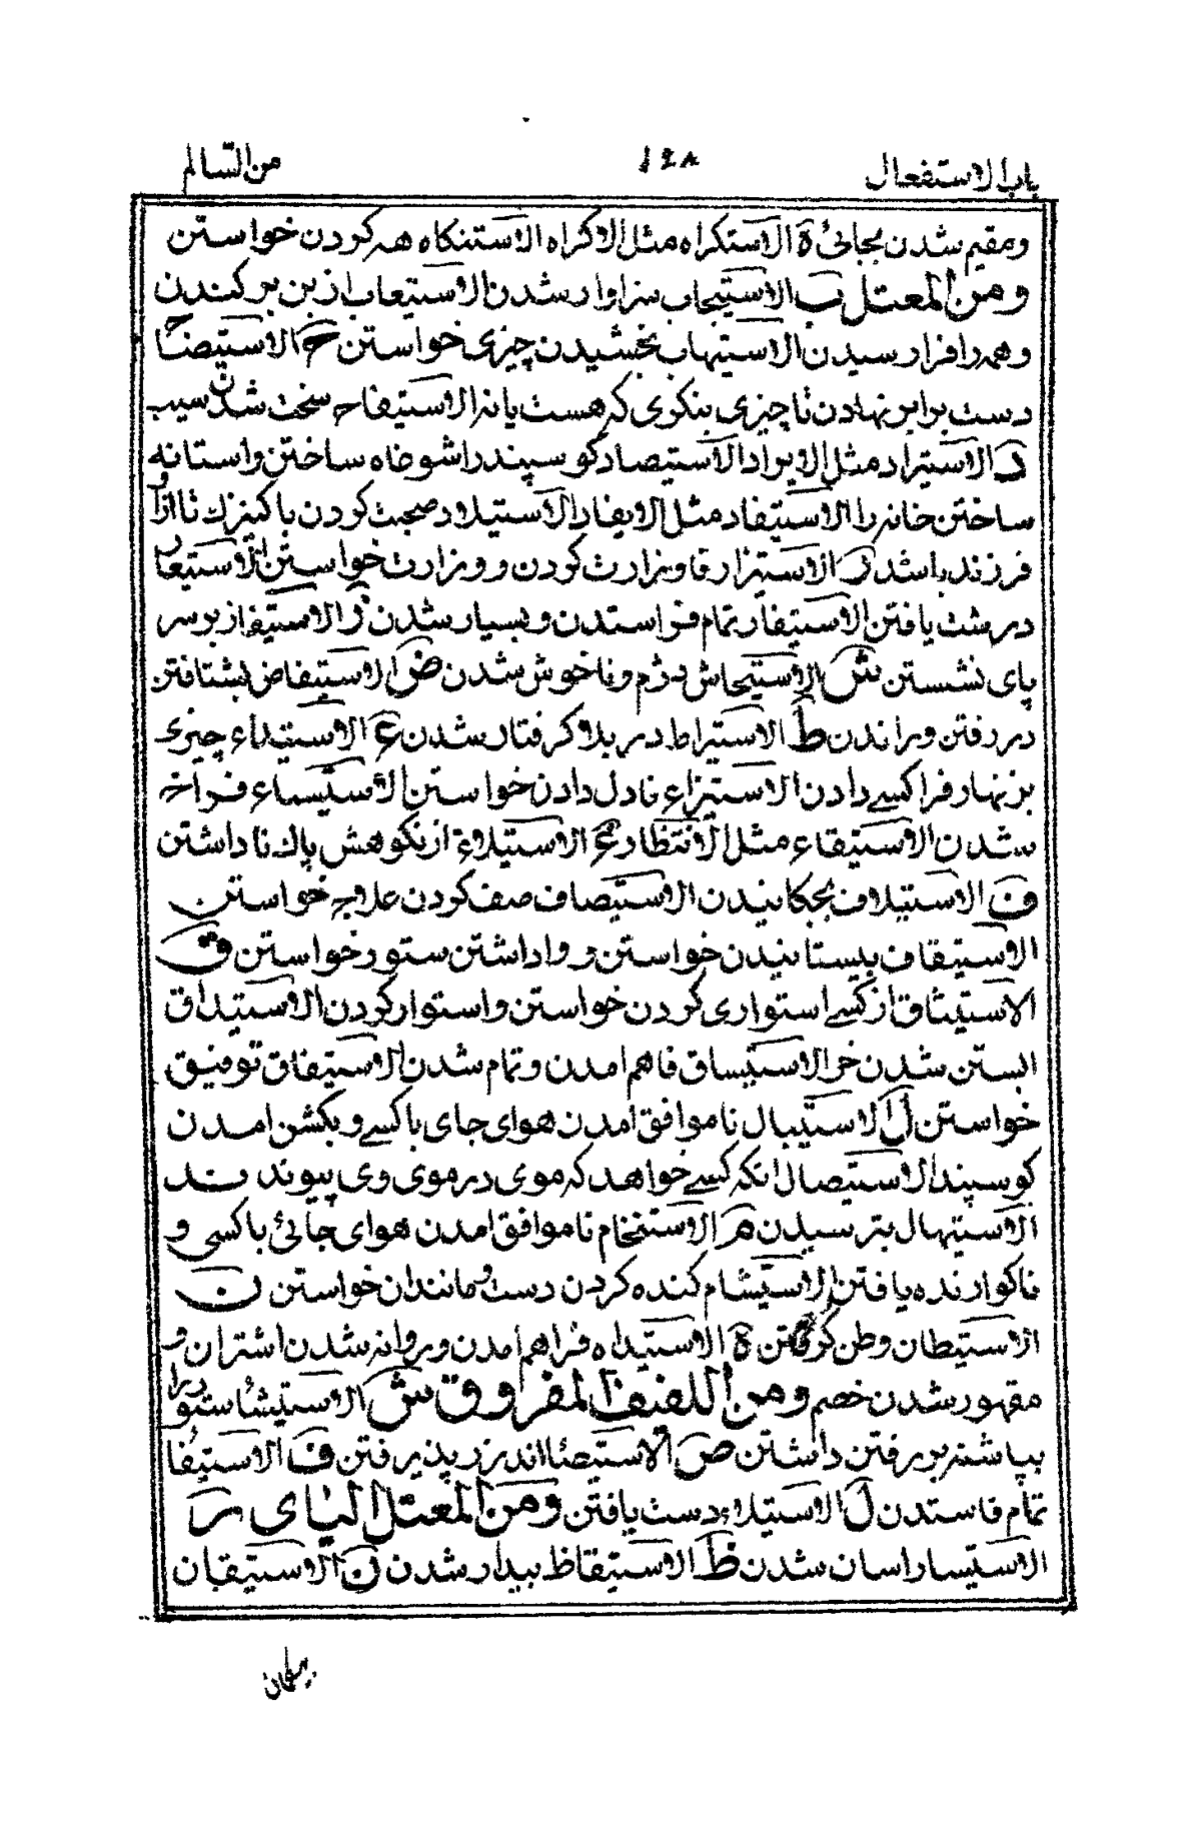 باب الاستفعال ١٤٨ من السالم
ومقیم شدن بجائی ة الاستکراه مثل الاکراه الاستنکاه هه کردن خواستن
ومن المعتل ب الاستیجاب سزاوار شدن الاستیعاب ازبن برکندن
وهمه رافزا رسیدن الاستیهاب بخشیدن چیزی خواستن ح الاستیضاح
دست برابر نهادن تاچیزی بنکری که هست یانه الاستیقاح سخت شدن سیب
د الاستیراد مثل الایراد الاستیصاد کوسپند را شوغاه ساختن واستانه
ساختن خانه را الاستیفاد مثل الایفاد الاستیلاد صحبت کردن باکنیزک تا اورا
فرزند باشد ر الاستیزار فا وزارت کردن و وزارت خواستن الاستیعار
درشت یافتن الاستیفار تمام فراستدن وبسیار شدن ز الاستیفاز برسر
پای نشستن ش الاستیحاش دژم وناخوش شدن ض الاستیفاض بشتافتن
دررفتن وراندن ط الاستیراط در بلا کرفتار شدن ع الاستیداع چیزی
بزنهار فراکسے دادن الاستیزاع نادل دادن خواستن الاستیساع فراخ
شدن الاستیقاع مثل الانتظار غ الاستیلاغ ازنکوهش پاک ناداشتن
ف الاستیلاف بچکانیدن الاستیصاف صفت کردن علاج خواستن
الاستیقاف بیستانیدن خواستن و واداشتن ستور خواستن ق
الاستیثاق ازکسے استواری کردن خواستن واستوار کردن الاستیداق
ابستن شدن خر الاستیساق فاهم امدن وتمام شدن الاستیفاق توفیق
خواستن ل الاستیبال ناموافق امدن هوای جای باکسے وبکشن امدن
کوسپند الاستیصال انکه کسے خواهد که موی درموی وی پیوندند
الاستیهال بترسیدن م الاستیخام ناموافق امدن هوای جائی باکسی و
ناکوارنده یافتن الاستیشام کنده کردن دست ومانندان خواستن ن
الاستیطان وطن کرفتن ة الاستیداه فراهم امدن وروانه شدن اشتران و
مقهور شدن خصم ومن اللفیف المفروق ش الاستیشا ستور را
بپاشنه بررفتن داشتن ص الاستیصا اندرز پذیرفتن ف الاستیفا
تمام فاستدن ل الاستیلاء دست یافتن ومن المعتل الیای ر
الاستیسار اسان شدن ظ الاستیقاظ بیدار شدن ن الاستیقان
بیکمان